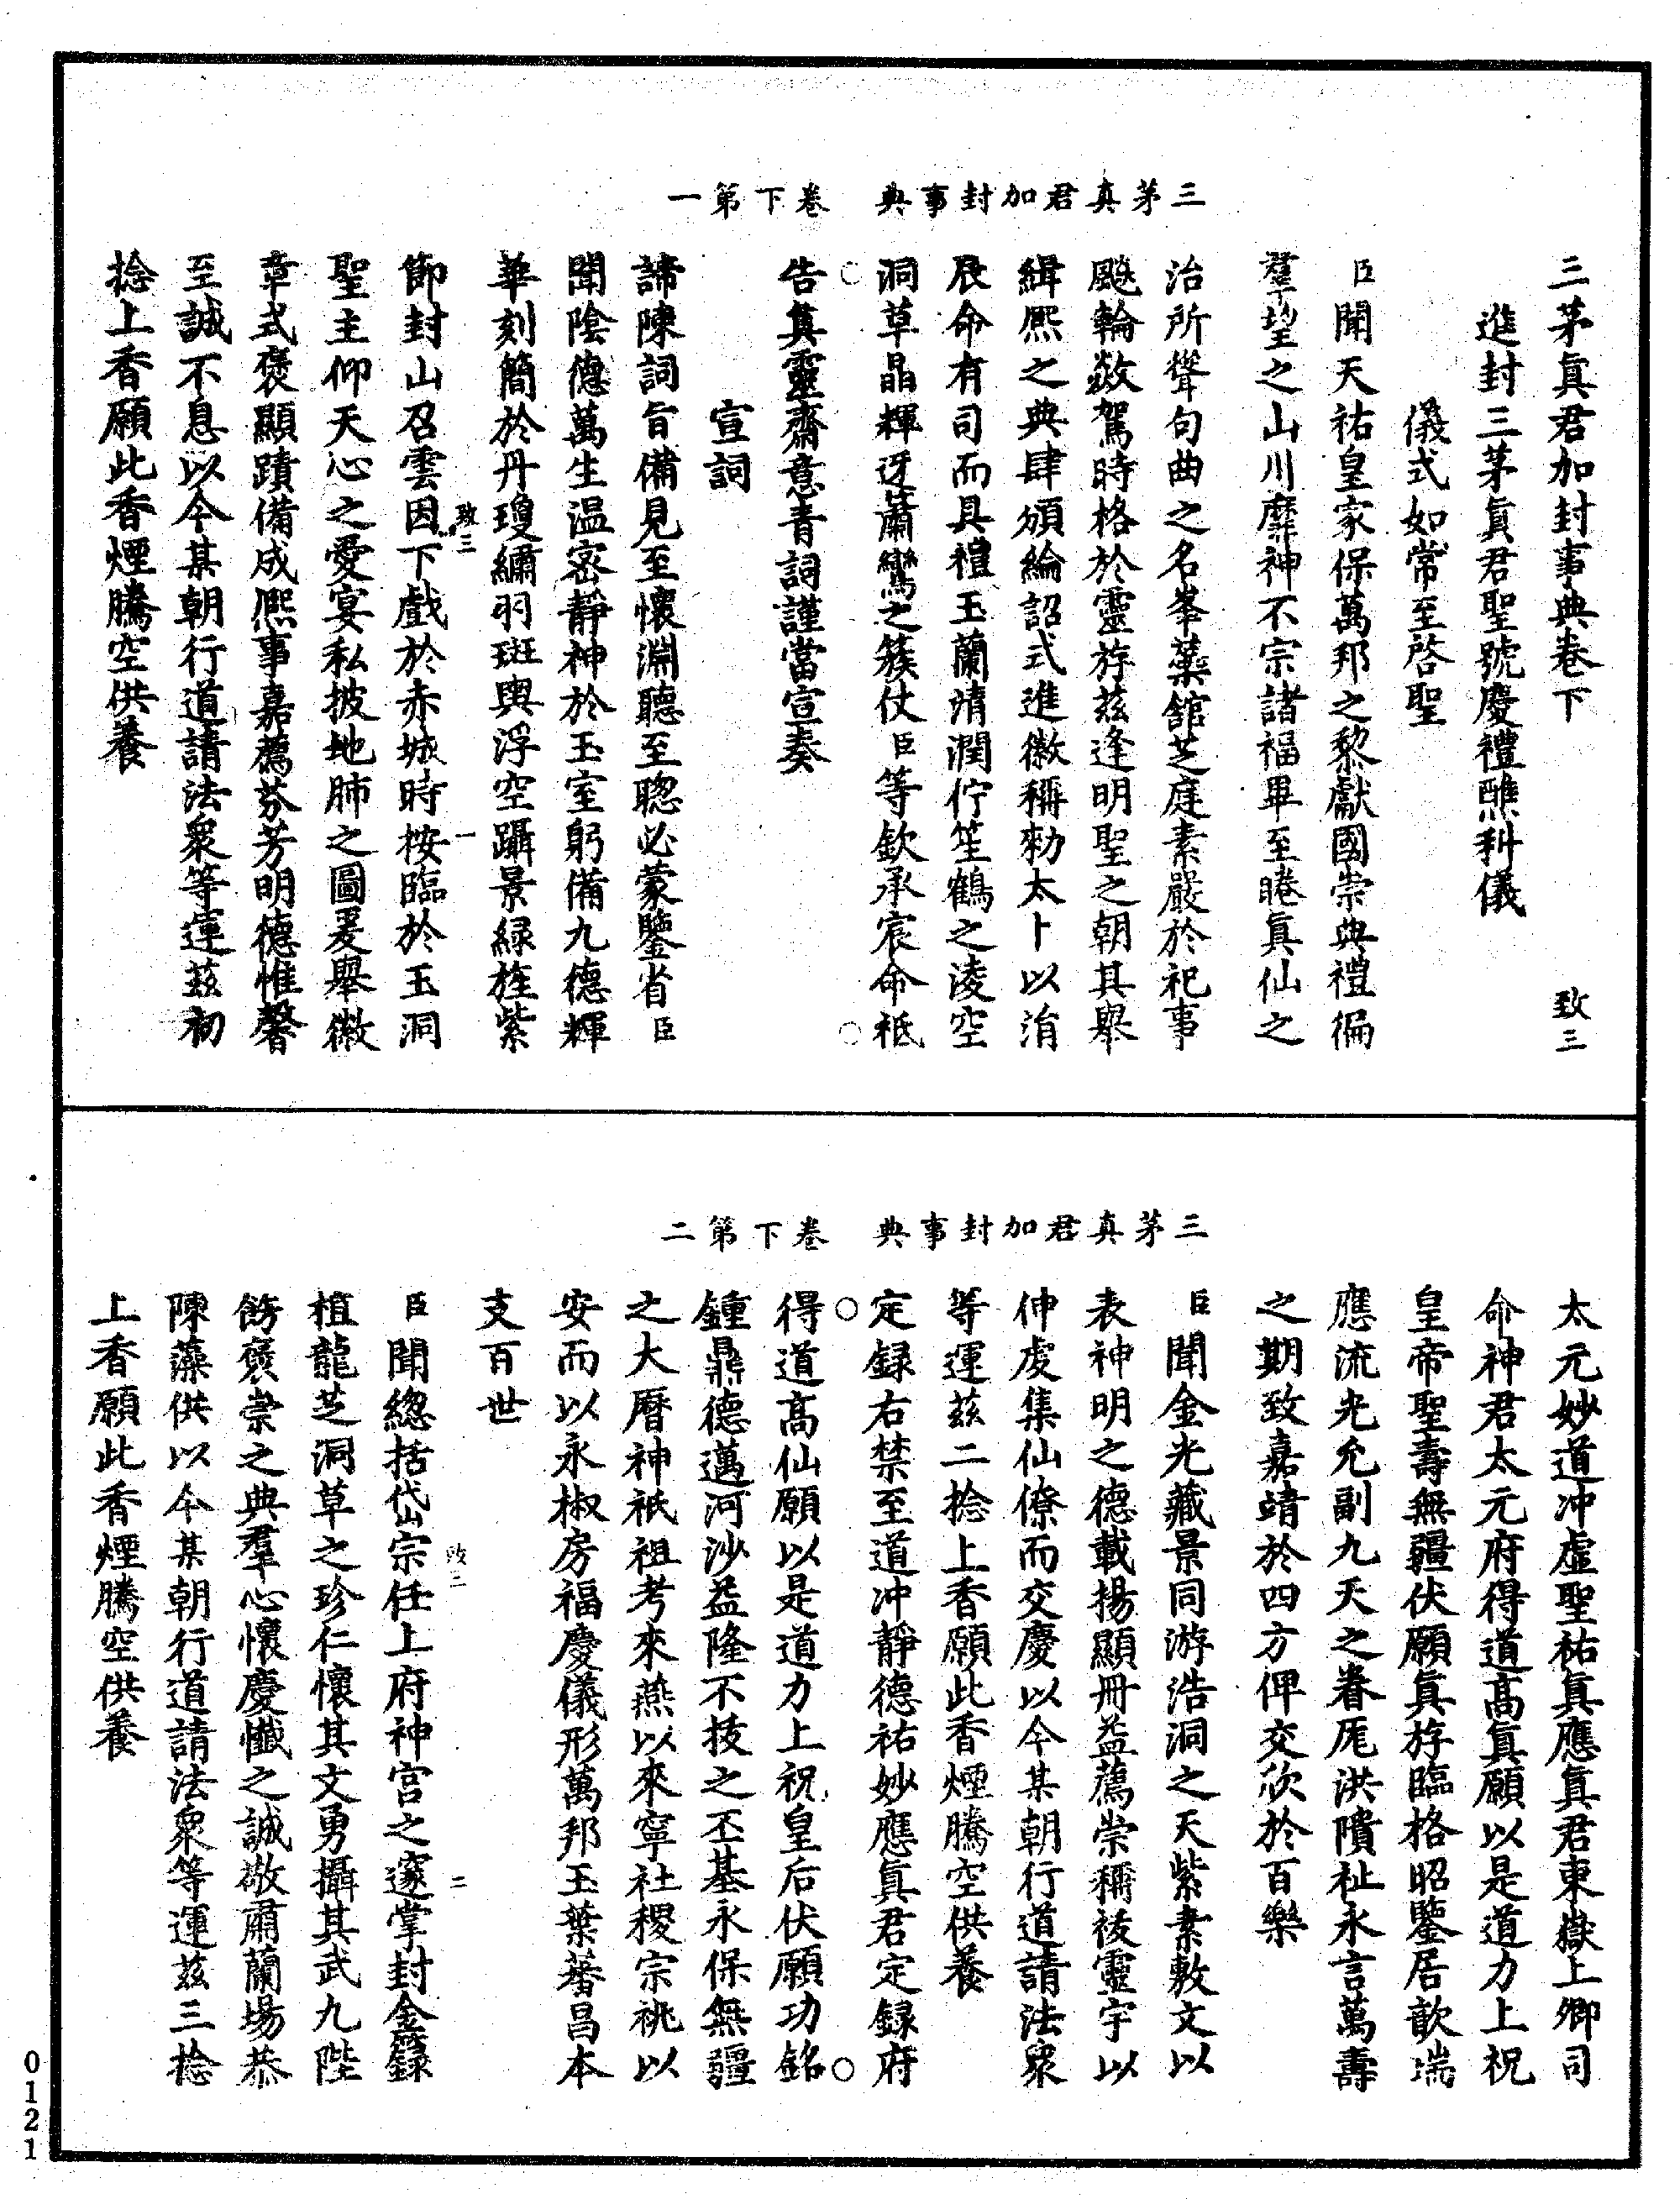 三茅真君加封事典　卷下第一
三茅眞君加封事典卷下　致三
進封三茅眞君聖號慶禮醮科儀
儀式如常至啓聖
臣聞天祐皇家保萬邦之黎獻國崇典禮徧
羣望之山川靡神不宗諸福畢至睠眞仙之
治所聳句曲之名峯蘂舘芝庭素嚴於祀事
飈輪歘駕時格於靈斿茲逢明聖之朝其舉
緝熈之典肆頒綸詔式進徽稱勑太卜以涓
辰命有司而具禮玉蘭清潤佇笙鶴之淩空
洞草晶輝迓簫鸞之簇仗臣等欽承宸命祗
告眞靈齋意青詞謹當宣奏
宣詞
諦陳詞旨備見至懷淵聽至聦必蒙鑒省臣
聞陰德萬生温密靜神於玉室躬備九德輝
華刻簡於丹瓊繡羽斑輿浮空躡景緑旌紫
節封山召雲因下戲於赤城時按臨於玉洞
致三　一
聖主仰天心之愛宴私披地肺之圖爰舉徽
章式褒顯蹟備成熈事嘉薦芬芳明德惟馨
至誠不息以今某朝行道請法衆等運茲初
捻上香願此香煙騰空供養
三茅真君加封事典　卷下第二
太元妙道冲虛聖祐眞應眞君東嶽上卿司
命神君太元府得道高眞願以是道力上祝
皇帝聖壽無疆伏願眞斿臨格昭鑒居歆端
應流光允副九天之眷厖洪隤祉永言萬壽
之期致嘉靖於四方俾交欣於百樂
臣聞金光藏景同游浩洞之天紫素敷文以
表神明之德載揚顯冊益薦崇稱祓靈宇以
伸虔集仙僚而交慶以今某朝行道請法衆
等運茲二捻上香願此香煙騰空供養
定録右禁至道冲靜德祐妙應眞君定録府
得道高仙願以是道力上祝皇后伏願功銘
鍾鼎德邁河沙益隆不拔之丕基永保無疆
之大曆神祇祖考來燕以來寧社稷宗祧以
安而以永椒房福慶儀形萬邦玉葉蕃昌本
支百世
臣聞總括岱宗任上府神宫之邃掌封金籙
致三　二
植龍芝洞草之珍仁懷其文勇攝其武九陛
飭褒崇之典羣心懷慶懺之誠敬肅蘭場恭
陳藻供以今某朝行道請法衆等運茲三捻
上香願此香煙騰空供養
0121